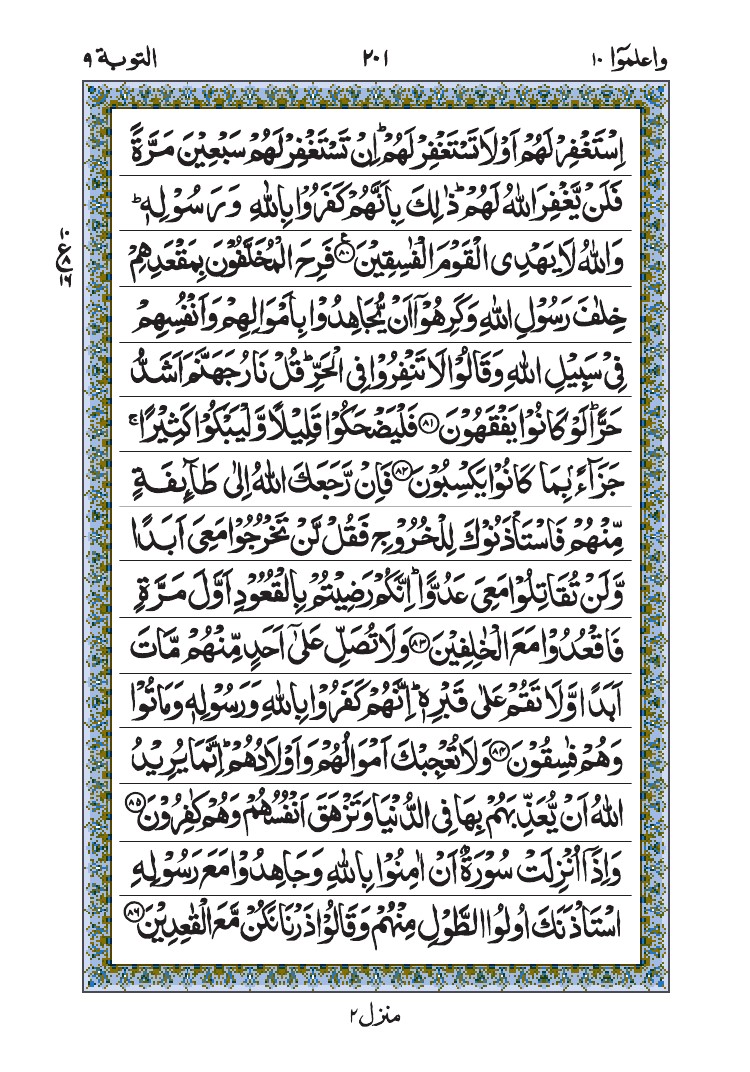 واعلموٓا ١٠
٢٠١
التوبة ٩
اِسْتَغْفِرْ لَهُمْ اَوْ لَا تَسْتَغْفِرْ لَهُمْ ؕ اِنْ تَسْتَغْفِرْ لَهُمْ سَبْعِيْنَ مَرَّةً
فَلَنْ يَّغْفِرَ اللّٰهُ لَهُمْ ؕ ذٰلِكَ بِاَنَّهُمْ كَفَرُوْا بِاللّٰهِ وَ رَسُوْلِهٖ ؕ
وَ اللّٰهُ لَا يَهْدِى الْقَوْمَ الْفٰسِقِيْنَ ﴿٨٠﴾ فَرِحَ الْمُخَلَّفُوْنَ بِمَقْعَدِهِمْ
خِلٰفَ رَسُوْلِ اللّٰهِ وَ كَرِهُوْۤا اَنْ يُّجَاهِدُوْا بِاَمْوَالِهِمْ وَ اَنْفُسِهِمْ
فِىْ سَبِيْلِ اللّٰهِ وَ قَالُوْا لَا تَنْفِرُوْا فِى الْحَرِّ ؕ قُلْ نَارُ جَهَنَّمَ اَشَدُّ
حَرًّا ؕ لَوْ كَانُوْا يَفْقَهُوْنَ ﴿٨١﴾ فَلْيَضْحَكُوْا قَلِيْلًا وَّ لْيَبْكُوْا كَثِيْرًا ۚ
جَزَآءًۢ بِمَا كَانُوْا يَكْسِبُوْنَ ﴿٨٢﴾ فَاِنْ رَّجَعَكَ اللّٰهُ اِلٰى طَآئِفَةٍ
مِّنْهُمْ فَاسْتَاْذَنُوْكَ لِلْخُرُوْجِ فَقُلْ لَّنْ تَخْرُجُوْا مَعِىَ اَبَدًا
وَّ لَنْ تُقَاتِلُوْا مَعِىَ عَدُوًّا ؕ اِنَّكُمْ رَضِيْتُمْ بِالْقُعُوْدِ اَوَّلَ مَرَّةٍ
فَاقْعُدُوْا مَعَ الْخٰلِفِيْنَ ﴿٨٣﴾ وَ لَا تُصَلِّ عَلٰٓى اَحَدٍ مِّنْهُمْ مَّاتَ
اَبَدًا وَّ لَا تَقُمْ عَلٰى قَبْرِهٖ ؕ اِنَّهُمْ كَفَرُوْا بِاللّٰهِ وَ رَسُوْلِهٖ وَ مَاتُوْا
وَ هُمْ فٰسِقُوْنَ ﴿٨٤﴾ وَ لَا تُعْجِبْكَ اَمْوَالُهُمْ وَ اَوْلَادُهُمْ ؕ اِنَّمَا يُرِيْدُ
اللّٰهُ اَنْ يُّعَذِّبَهُمْ بِهَا فِى الدُّنْيَا وَ تَزْهَقَ اَنْفُسُهُمْ وَ هُمْ كٰفِرُوْنَ ﴿٨٥﴾
وَ اِذَاۤ اُنْزِلَتْ سُوْرَةٌ اَنْ اٰمِنُوْا بِاللّٰهِ وَ جَاهِدُوْا مَعَ رَسُوْلِهِ
اسْتَاْذَنَكَ اُولُوا الطَّوْلِ مِنْهُمْ وَ قَالُوْا ذَرْنَا نَكُنْ مَّعَ الْقٰعِدِيْنَ ﴿٨٦﴾
منزل ٢